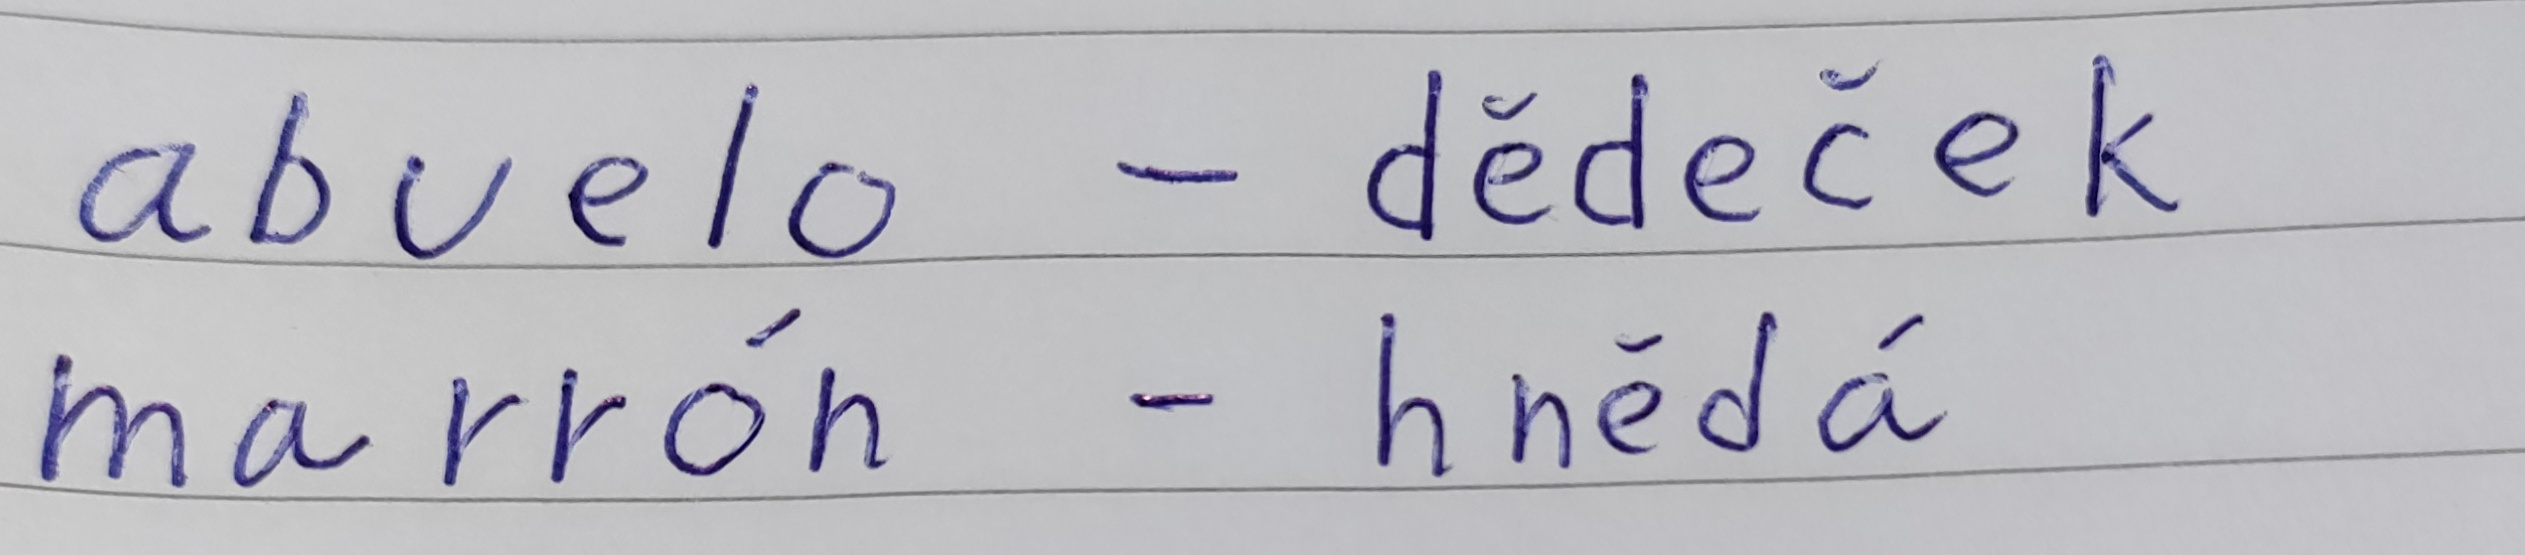 abuelo - dědeček
marrón - hnědá